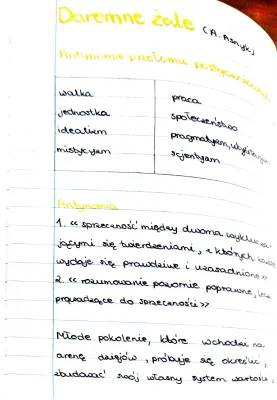 Daremne żale (A. Asnyk)
Antynomie przełomu
walka praca
jednostka społeczeństwo
idealizm pragmatyzm,
mistycyzm scjentyzm
Antynomia
1. << sprzeczność między dwoma wyklucza-
jącymi się twierdzeniami, z których
wydaje się prawdziwe i uzasadnione >>
2. << rozumowanie pozornie poprawne, lecz
prowadzące do sprzeczności >>
Młode pokolenie, które wchodzi na
arenę dziejów, próbuje się określić,
zbudować swój własny system wartości